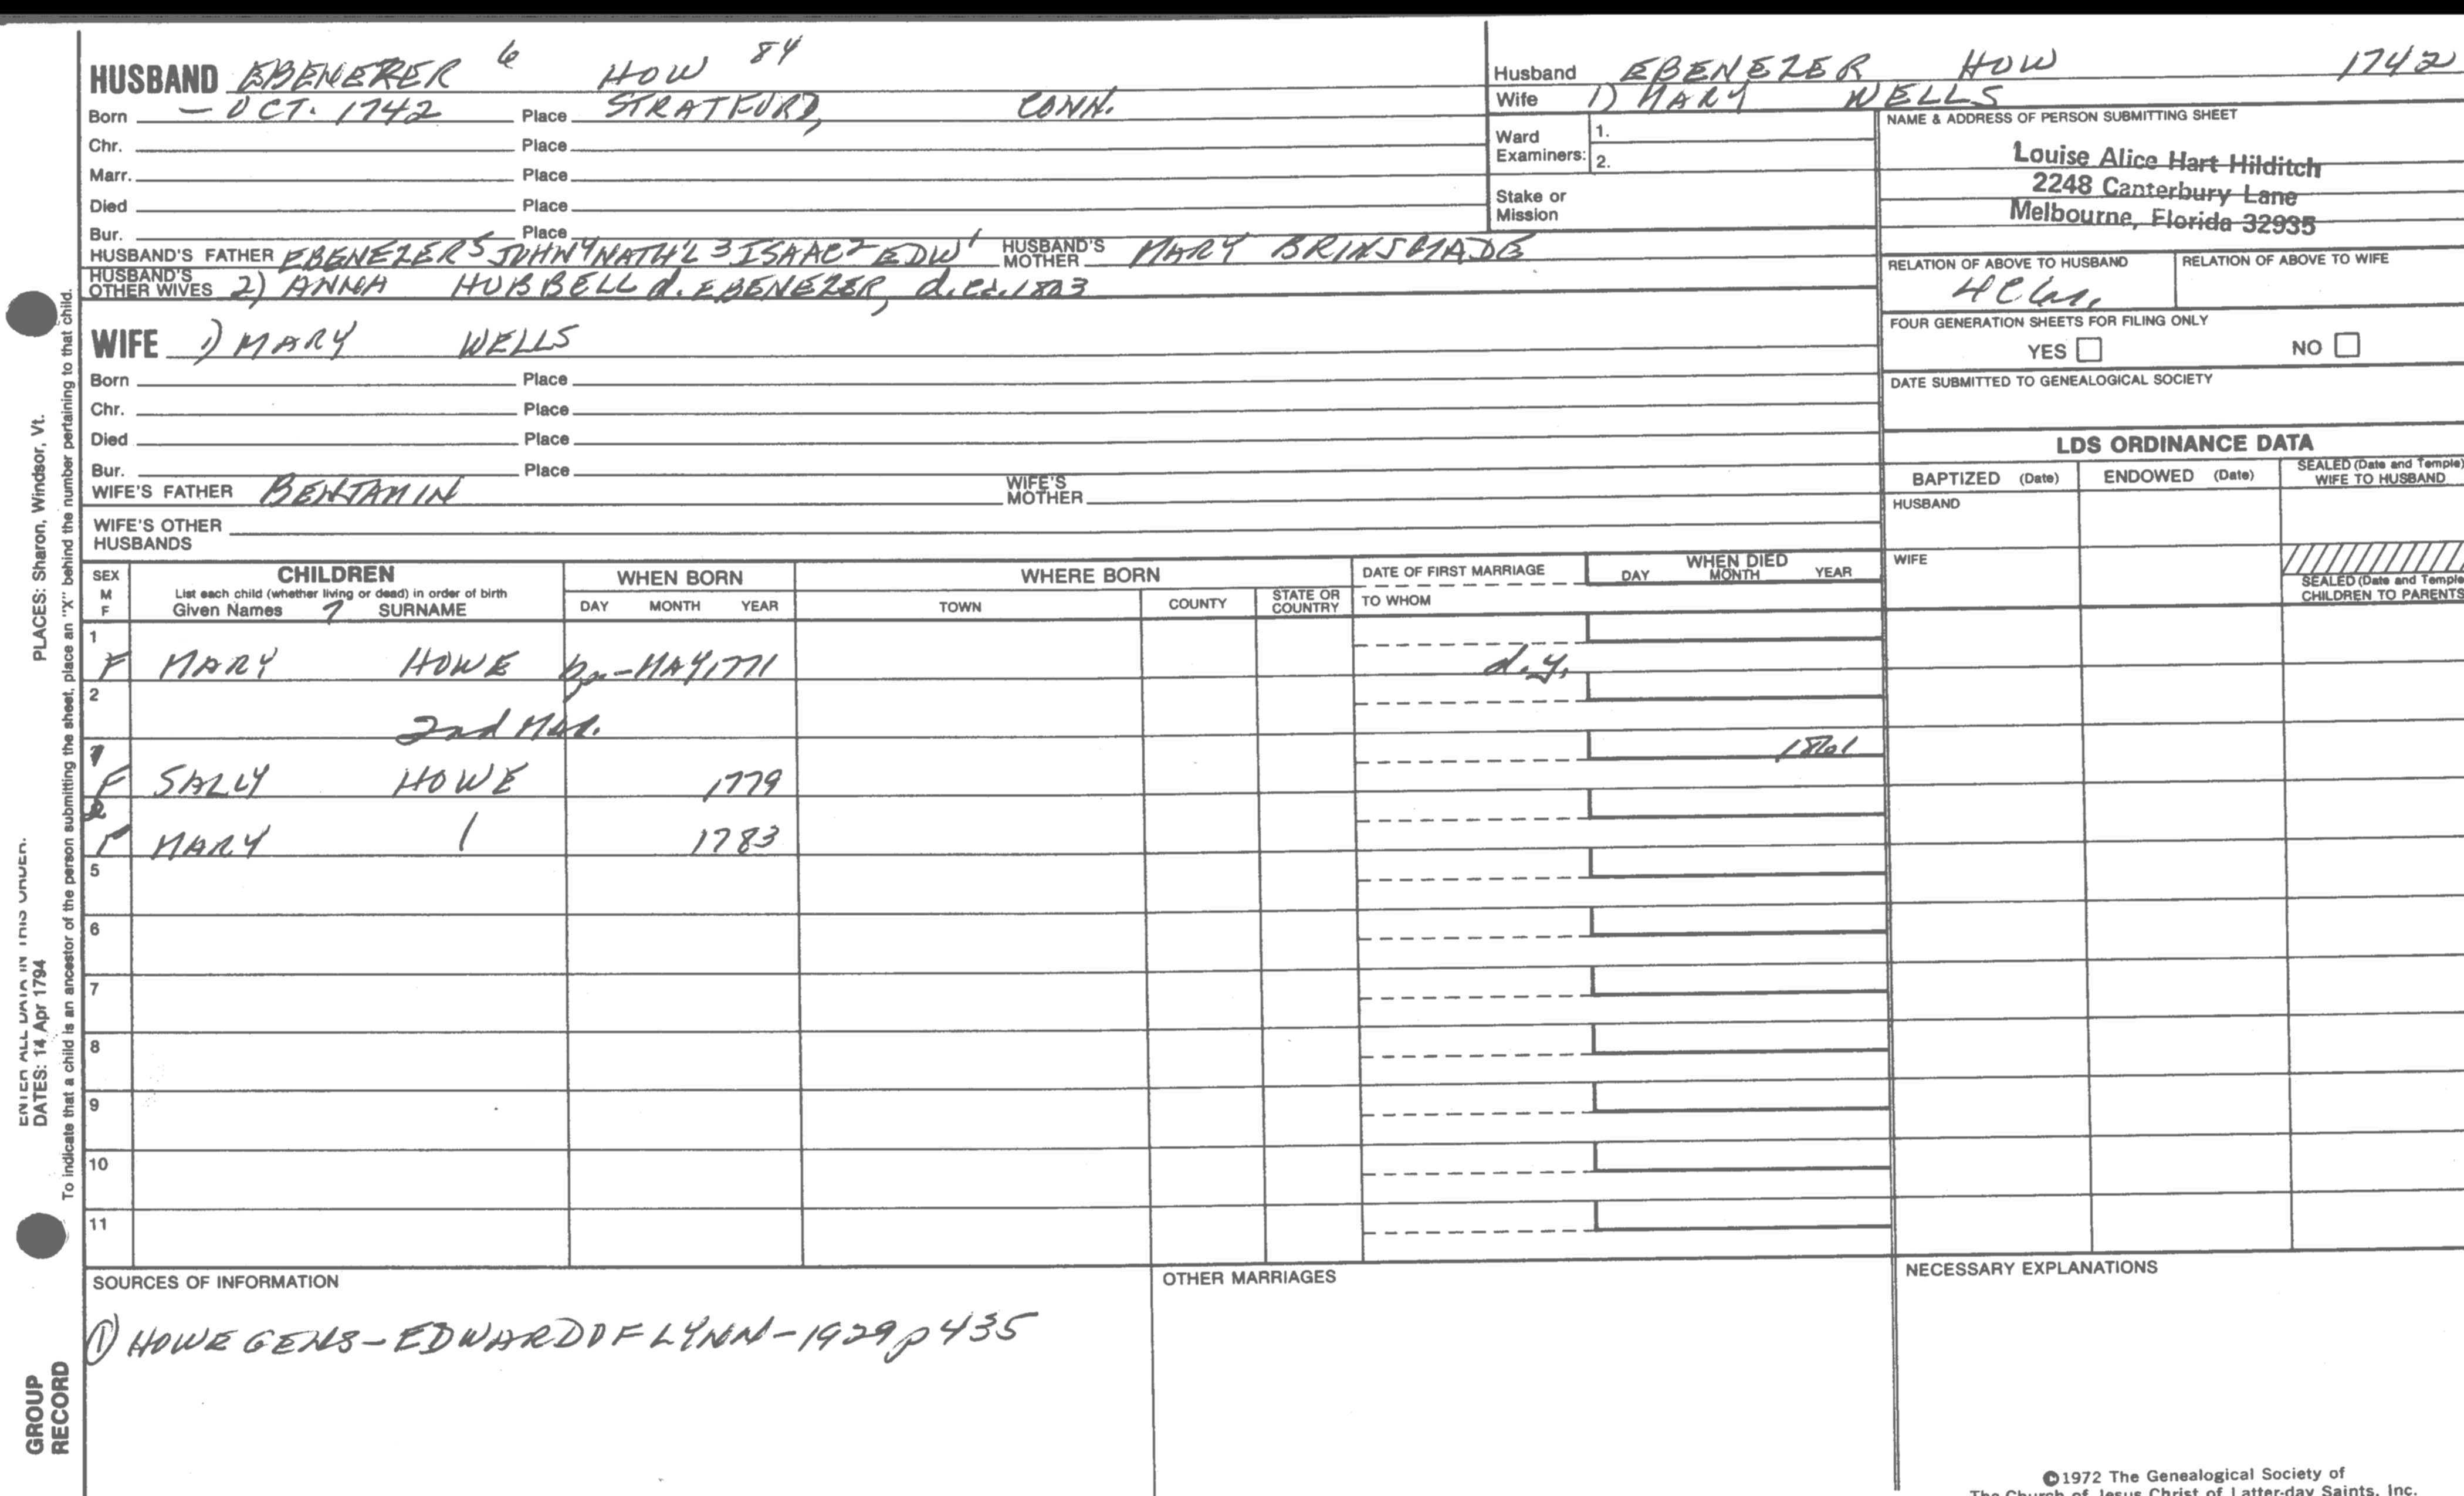 HUSBAND EBENERER 6 HOW 84
Born – OCT. 1742 Place STRATFORD, CONN.
Chr. Place
Marr. Place
Died Place
Bur. Place
HUSBAND'S FATHER EBENEZER 5 JOHN 4 NATH'L 3 ISAAC 2 EDW 1 HUSBAND'S MOTHER MARY BRINSMADE
HUSBAND'S OTHER WIVES 2) ANNA HUBBELL d. EBENEZER,
WIFE 1) MARY WELLS
Born Place
Chr. Place
Died Place
Bur. Place
WIFE'S FATHER BENJAMIN WIFE'S MOTHER
WIFE'S OTHER HUSBANDS
Husband EBENEZER HOW 1742
Wife 1) MARY WELLS
Ward Examiners: 1.
2.
Stake or Mission
NAME & ADDRESS OF PERSON SUBMITTING SHEET
Louise Alice Hart Hilditch
2248 Canterbury Lane
Melbourne, Florida 32935
RELATION OF ABOVE TO HUSBAND RELATION OF ABOVE TO WIFE
FOUR GENERATION SHEETS FOR FILING ONLY
YES NO
DATE SUBMITTED TO GENEALOGICAL SOCIETY
LDS ORDINANCE DATA
BAPTIZED (Date) ENDOWED (Date) SEALED (Date and Temple) WIFE TO HUSBAND
HUSBAND
WIFE
SEALED (Date and Temple CHILDREN TO PARENTS
SEX M F
CHILDREN
List each child (whether living or dead) in order of birth
Given Names SURNAME
WHEN BORN
DAY MONTH YEAR
WHERE BORN
TOWN COUNTY STATE OR COUNTRY
DATE OF FIRST MARRIAGE
TO WHOM
WHEN DIED
DAY MONTH YEAR
1
F MARY HOWE – MAY 1771 d.y.
2
2nd Mar.
1
1861
F SALLY HOWE 1779
2
F MARY 1783
5
6
7
8
9
10
11
SOURCES OF INFORMATION
① HOWE GENS – EDWARD OF LYNN – 1929 p 435
OTHER MARRIAGES
NECESSARY EXPLANATIONS
©1972 The Genealogical Society of
The Church of Jesus Christ of Latter-day Saints, Inc.
PLACES: Sharon, Windsor, Vt.
ENTER ALL DATA IN THIS ORDER:
DATES: 14 Apr 1794
To indicate that a child is an ancestor of the person submitting the sheet, place an "X" behind the number pertaining to that child.
GROUP
RECORD